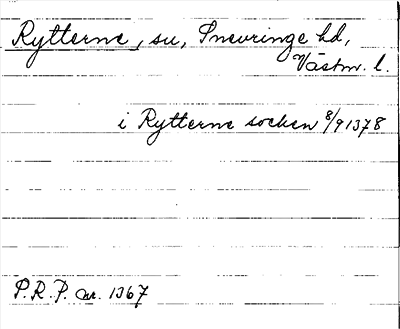 Rytterne, su, Snevringe hd,
Västm. l.
i Rytterne socken 8/9 1378
P.R.P. nr. 1367